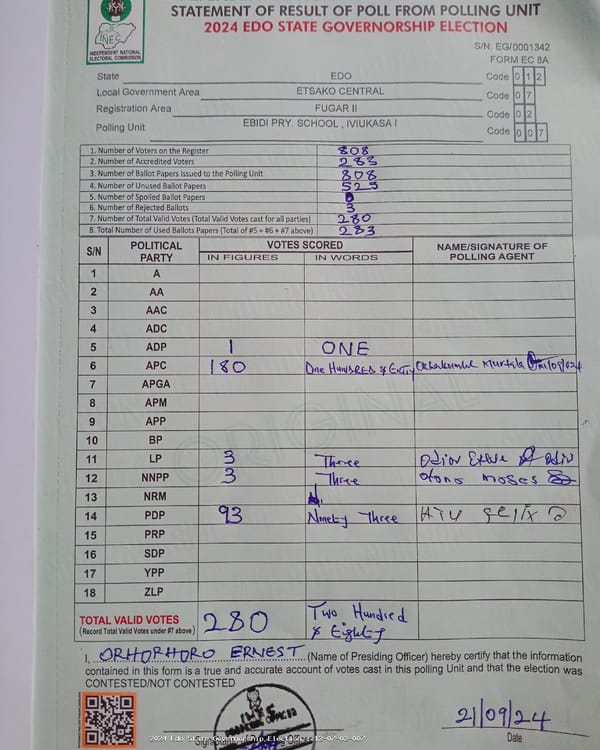 INEC
INDEPENDENT NATIONAL
ELECTORAL COMMISSION
STATEMENT OF RESULT OF POLL FROM POLLING UNIT
2024 EDO STATE GOVERNORSHIP ELECTION
S/N: EG/0001342
FORM EC 8A
State EDO Code 0 1 2
Local Government Area ETSAKO CENTRAL Code 0 7
Registration Area FUGAR II Code 0 2
Polling Unit EBIDI PRY. SCHOOL , IVIUKASA I Code 0 0 7
1. Number of Voters on the Register 808
2. Number of Accredited Voters 283
3. Number of Ballot Papers Issued to the Polling Unit 808
4. Number of Unused Ballot Papers 525
5. Number of Spoiled Ballot Papers
6. Number of Rejected Ballots 3
7. Number of Total Valid Votes (Total Valid Votes cast for all parties) 280
8. Total Number of Used Ballots Papers (Total of #5 + #6 + #7 above) 283
S/N POLITICAL PARTY VOTES SCORED NAME/SIGNATURE OF POLLING AGENT
IN FIGURES IN WORDS
1 A
2 AA
3 AAC
4 ADC
5 ADP 1 ONE
6 APC 180 One HUNDRED & Murtala
7 APGA
8 APM
9 APP
10 BP
11 LP 3 Three Odior
12 NNPP 3 Three moses
13 NRM
14 PDP 93 Ninety Three Felix
15 PRP
16 SDP
17 YPP
18 ZLP
ORIGINAL
TOTAL VALID VOTES 280 Two Hundred
(Record Total Valid Votes under #7 above) & Eighty
I, ORHORHORO ERNEST (Name of Presiding Officer) hereby certify that the information
contained in this form is a true and accurate account of votes cast in this polling Unit and that the election was
CONTESTED/NOT CONTESTED
21/09/24
Date
2024 Edo State Governorship Election